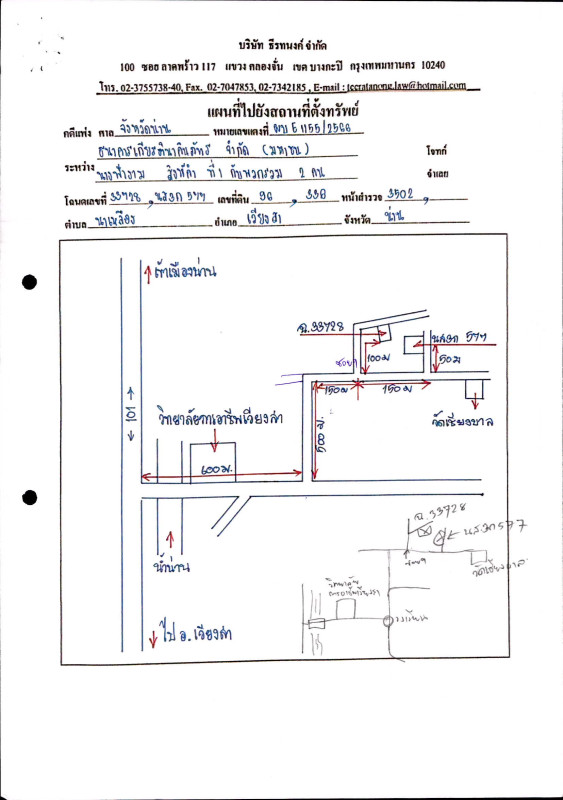 บริษัท ธีรทนงค์ จำกัด
100 ซอย ลาดพร้าว 117 แขวง คลองจั่น เขต บางกะปิ กรุงเทพมหานคร 10240
โทร. 02-3755738-40, Fax. 02-7047853, 02-7342185 , E-mail : teeratanong.law@hotmail.com
แผนที่ไปยังสถานที่ตั้งทรัพย์
คดีแพ่ง ศาล จังหวัดน่าน หมายเลขแดงที่ ผบ E 1155/2566
ธนาคารเกียรตินาคินภัทร จำกัด (มหาชน) โจทก์
ระหว่าง
ที่ 1 กับพวกรวม 2 คน จำเลย
โฉนดเลขที่ 33728 , น.ส.3ก 577 เลขที่ดิน 96 , 336 หน้าสำรวจ 3502 ,
ตำบล นาเหลือง อำเภอ เวียงสา จังหวัด น่าน
เข้าเมืองน่าน
ฉ.33728
น.ส.3ก 577
ซอย 1
100 ม
50 ม
150 ม
150 ม
101
วิทยาลัยการอาชีพเวียงสา
500 ม.
วัดเชียงบาล
600 ม.
น้ำน่าน
ไป อ.เวียงสา
ฉ.33728
น.ส.3ก 577
วัดเชียงบาล
วิทยาลัย
การอาชีพเวียงสา